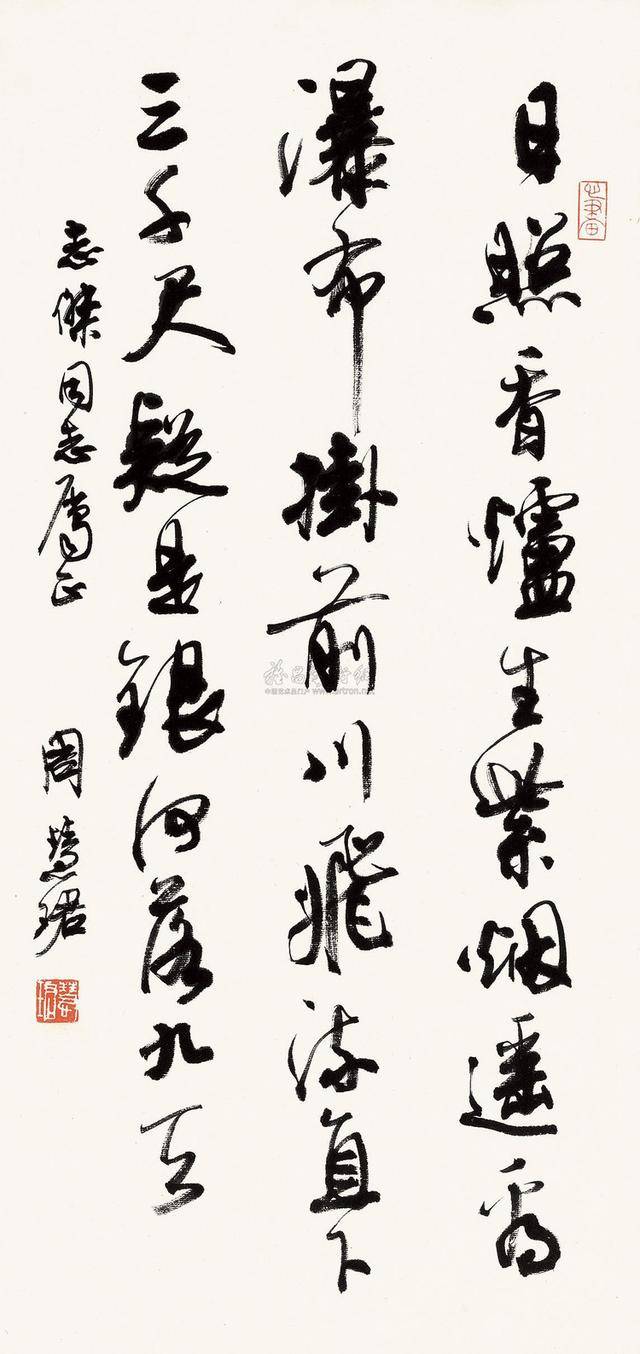 日照香爐生紫烟遥看
瀑布掛前川飛流直下
三千尺疑是銀河落九天
志傑同志属正 周慧珺
慧珺